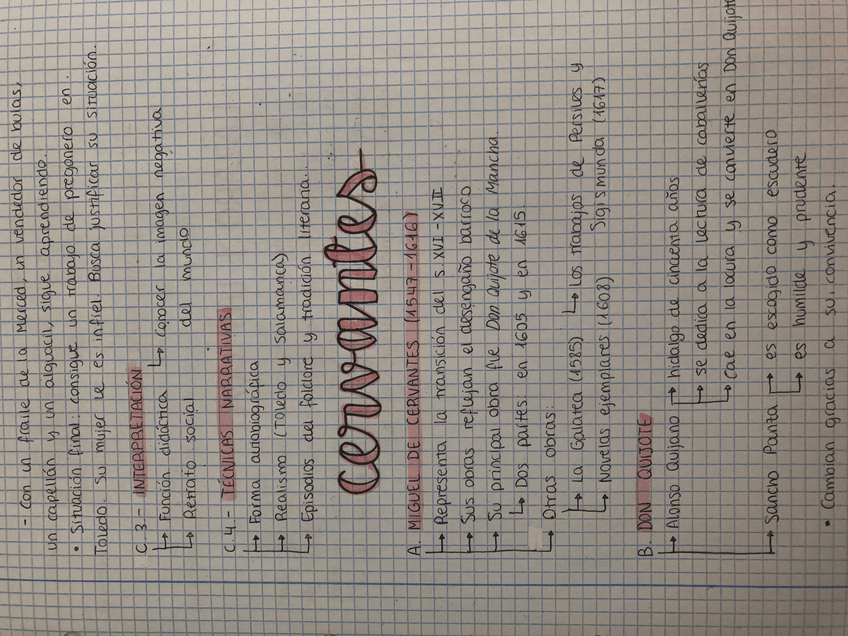 - Con un fraile de la Merced, un vendedor de bulas,
un capellán y un alguacil, sigue aprendiendo.
• Situación final: consigue un trabajo de pregonero en
Toledo. Su mujer le es infiel. Busca justificar su situación.
C.3.- INTERPRETACIÓN
↳ Función didáctica ↳ Conocer la imagen negativa
↳ Retrato social del mundo
C.4.- TÉCNICAS NARRATIVAS
↳ Forma autobiográfica
↳ Realismo (Toledo y Salamanca)
↳ Episodios del folclore y tradición literaria...
cervantes
A. MIGUEL DE CERVANTES (1547-1616)
↳ Representa la transición del s. XVI - XVII
↳ Sus obras reflejan el desengaño barroco
↳ Su principal obra fue Don Quijote de la Mancha
↳ Dos partes: en 1605 y en 1615.
↳ Otras obras:
↳ La Galatea (1585) ↳ Los trabajos de Persiles y
↳ Novelas ejemplares (1608) Sigismunda (1617)
B. DON QUIJOTE
↳ Alonso Quijano → hidalgo de cincuenta años
↳ se dedica a la lectura de caballerías
↳ cae en la locura y se convierte en Don Quijote
↳ Sancho Panza → es escogido como escudero
↳ es humilde y prudente
• Cambian gracias a su convivencia.